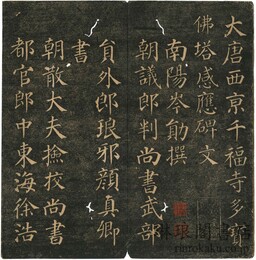 大唐西京千福寺多寶
佛塔感應碑文
南陽岑勛撰
朝議郎判尚書武部
員外郎琅邪顏真卿
書
朝散大夫撿校尚書
都官郎中東海徐浩
rinrokaku.co.jp